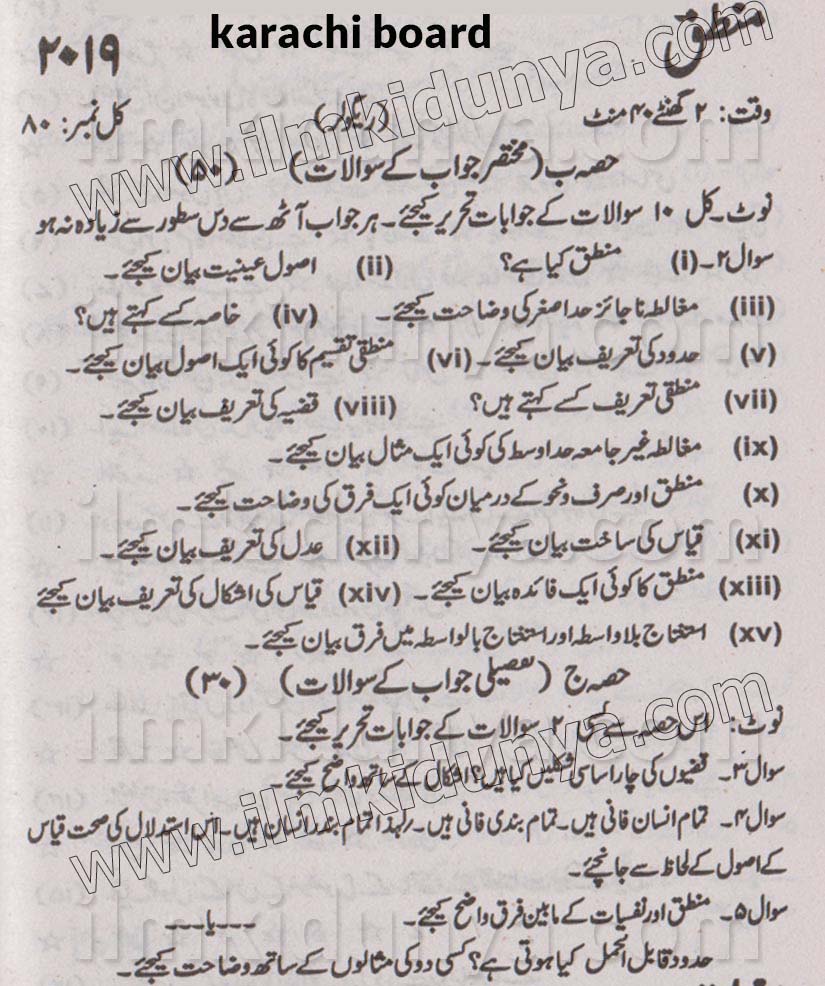 karachi board
منطق
۲۰۱۹
وقت: ۲ گھنٹے ۴۰ منٹ (ریگولر) کل نمبر: ۸۰
حصہ ب (مختصر جواب کے سوالات) (۵۰)
نوٹ۔ کل ۱۰ سوالات کے جوابات تحریر کیجئے۔ ہر جواب آٹھ سے دس سطور سے زیادہ نہ ہو
سوال ۲۔ (i) منطق کیا ہے؟ (ii) اصول عینیت بیان کیجئے۔
(iii) مغالطہ ناجائز حد اصغر کی وضاحت کیجئے۔ (iv) خاصہ کسے کہتے ہیں؟
(v) حدود کی تعریف بیان کیجئے۔ (vi) منطقی تقسیم کا کوئی ایک اصول بیان کیجئے۔
(vii) منطقی تعریف کسے کہتے ہیں؟ (viii) قضیہ کی تعریف بیان کیجئے۔
(ix) مغالطہ غیر جامعہ حد اوسط کی کوئی ایک مثال بیان کیجئے۔
(x) منطق اور صرف ونحو کے درمیان کوئی ایک فرق کی وضاحت کیجئے۔
(xi) قیاس کی ساخت بیان کیجئے۔ (xii) عدل کی تعریف بیان کیجئے۔
(xiii) منطق کا کوئی ایک فائدہ بیان کیجئے۔ (xiv) قیاس کی اشکال کی تعریف بیان کیجئے
(xv) استنتاج بلا واسطہ اور استنتاج بالواسطہ میں فرق بیان کیجئے۔
حصہ ج (تفصیلی جواب کے سوالات) (۳۰)
نوٹ: اس حصہ سے کسی ۲ سوالات کے جوابات تحریر کیجئے۔
سوال ۳۔ قضیوں کی چار اساسی شکلیں کیا ہیں؟ اشکال کے ساتھ واضح کیجئے۔
سوال ۴۔ تمام انسان فانی ہیں۔ تمام بندی فانی ہیں۔ لہذا تمام بندر انسان ہیں۔ اس استدلال کی صحت قیاس
کے اصول کے لحاظ سے جانچئے۔
سوال ۵۔ منطق اور نفسیات کے مابین فرق واضح کیجئے۔ ---یا---
حدود قابل الحمل کیا ہوتی ہے؟ کسی دو کی مثالوں کے ساتھ وضاحت کیجئے۔
www.ilmkidunya.com
www.ilmkidunya.com
ilmkidunya.com
ilmkidunya.com
ilmkidunya.com
ilmkidunya.com
ilmkidunya.com